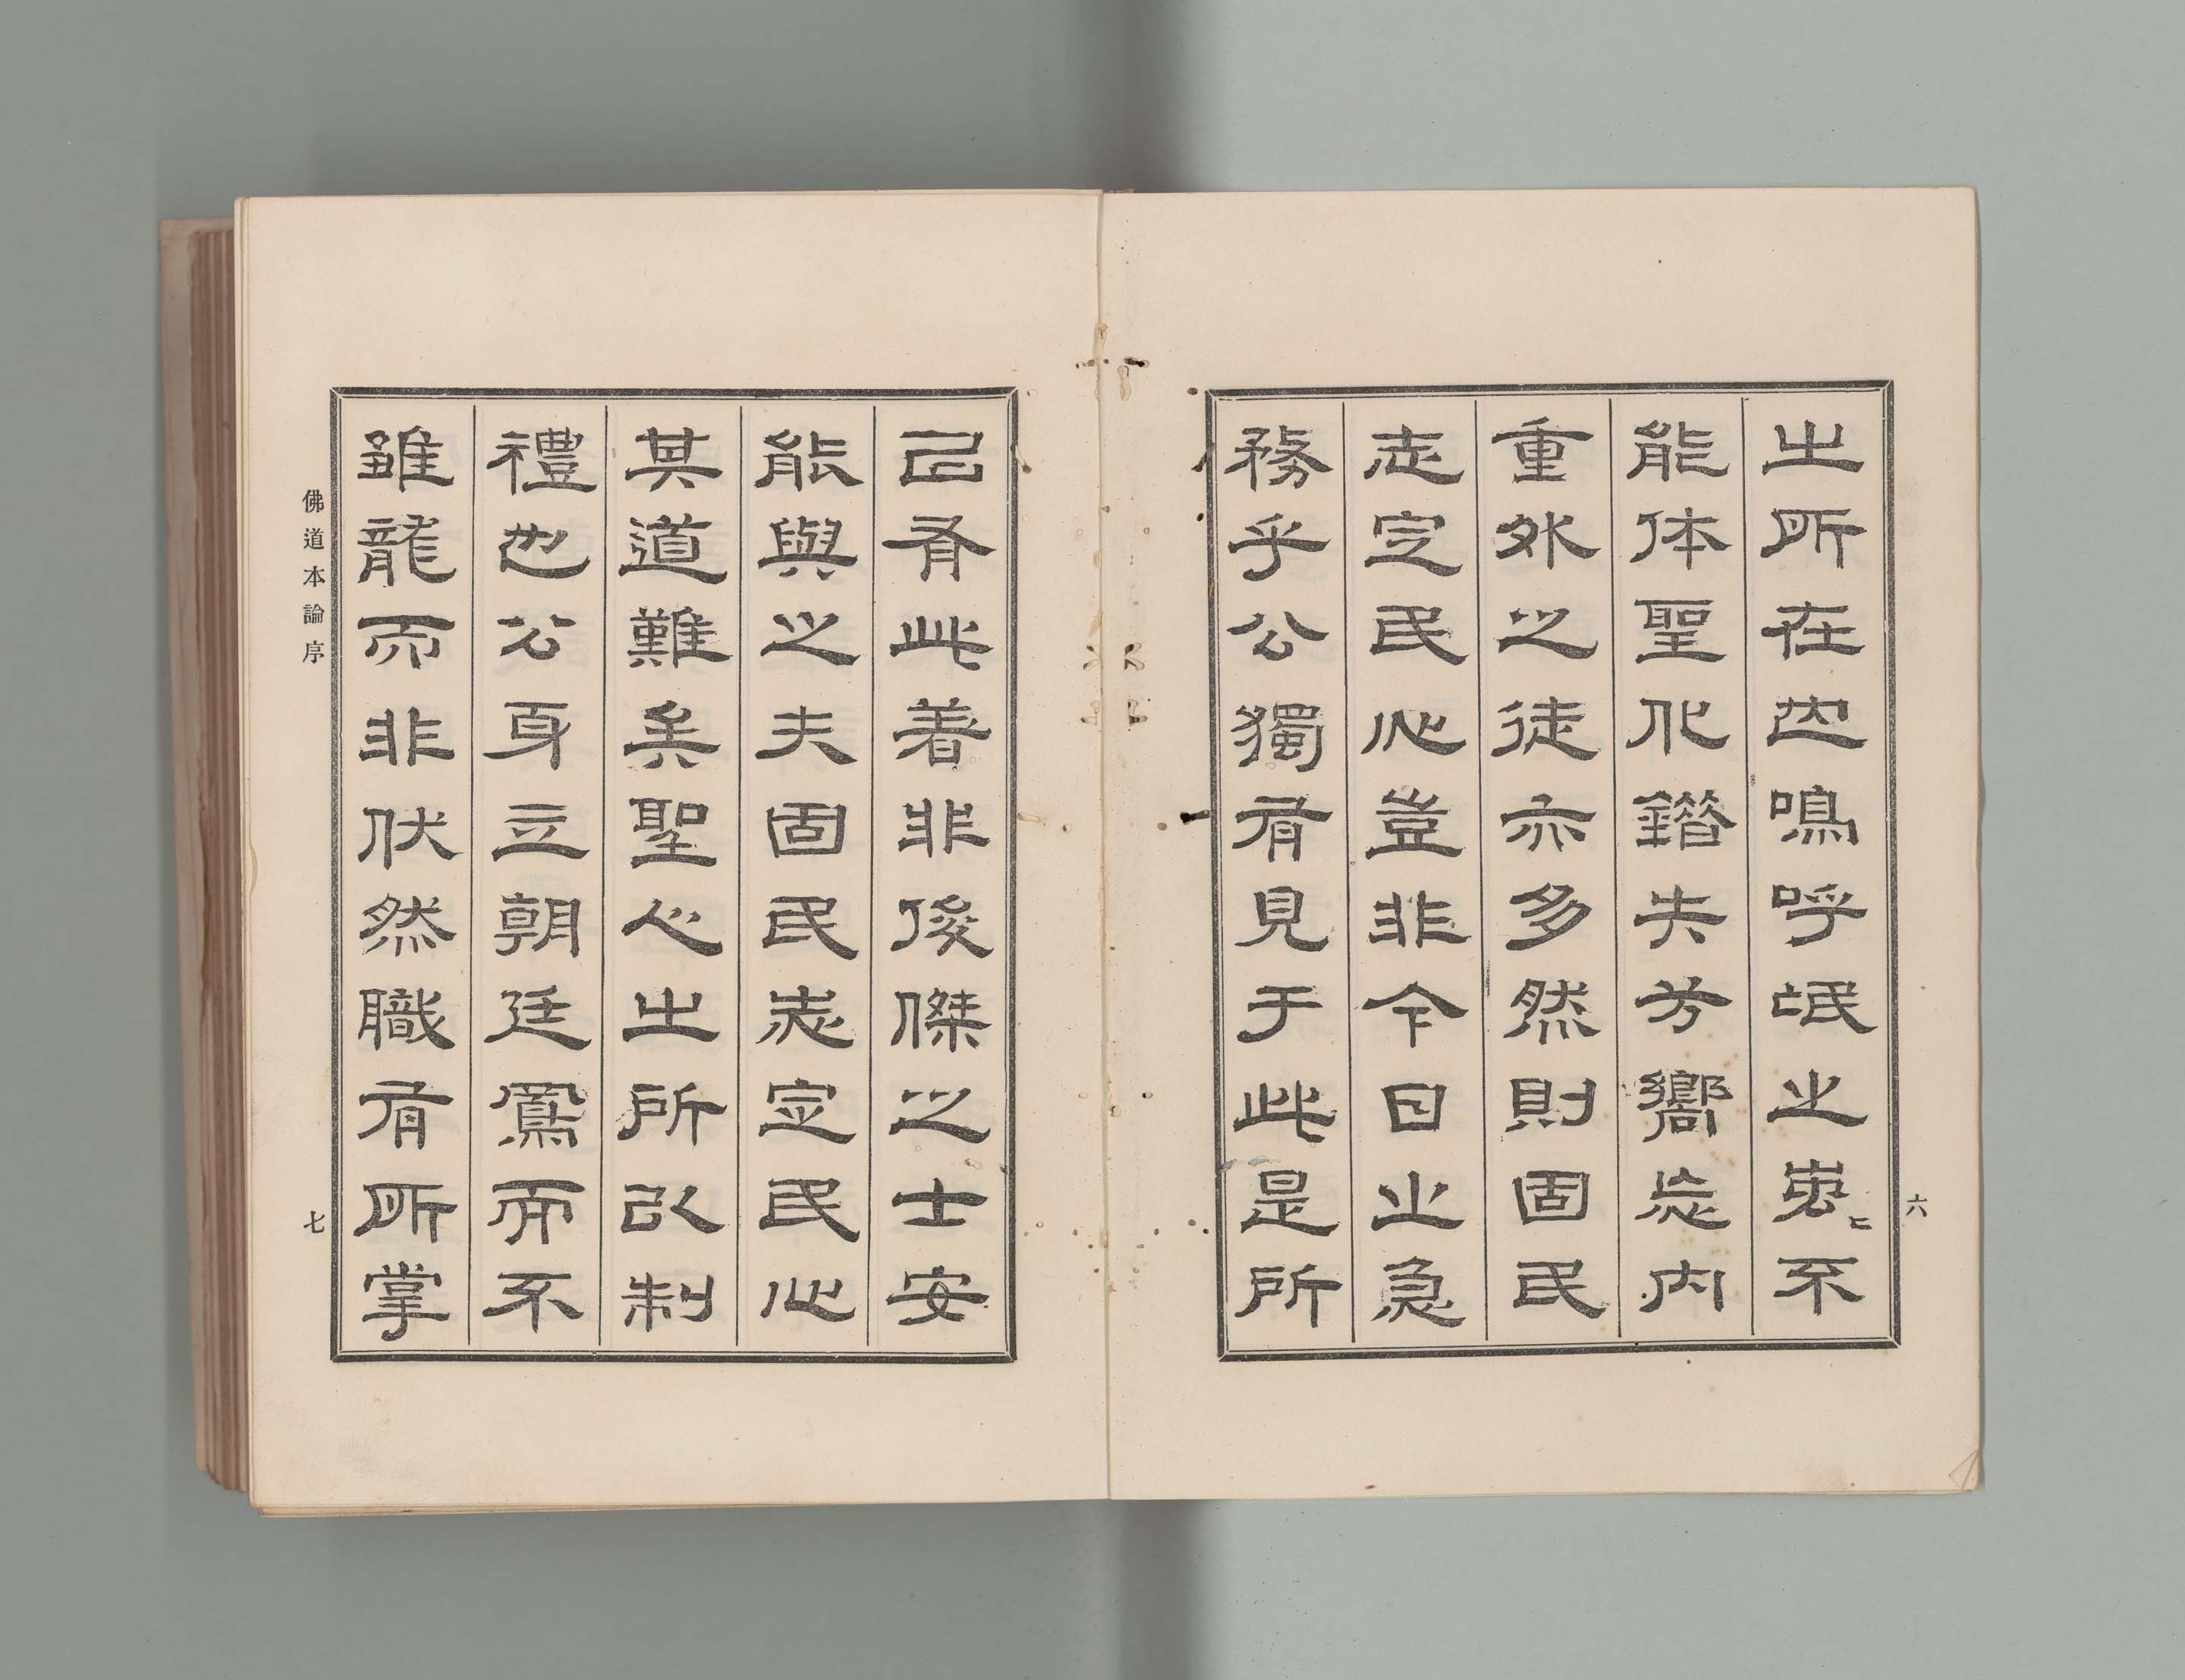 六
之所在也嗚呼氓之蚩〻不
能体聖化錯失方嚮忘内
重外之徒亦多然則固民
志定民心豈非今日之急
務乎公獨有見于此是所
以有此著非俊傑之士安
能與之夫固民志定民心
其道難矣聖心之所以制
禮也公身立朝廷鳳而不
雛龍而非伏然職有所掌
佛道本論序
七